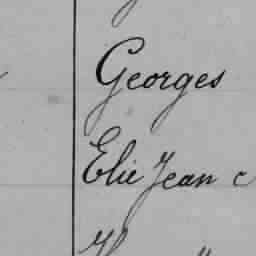 Georges
Elie Jean